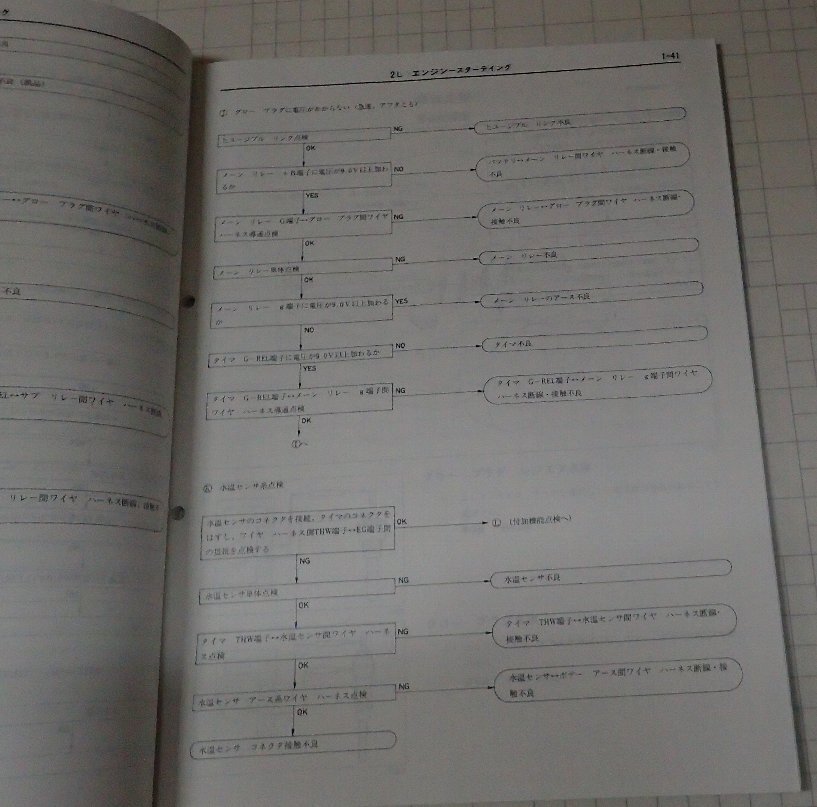 グ
不良（部品）
グロー プラグ間ワイヤ ハーネス断線・
不良
サブ リレー間ワイヤ ハーネス断線
リレー間ワイヤ ハーネス断線・接触不
2L エンジンースターティング
1-41
グロー プラグに電圧がかからない（急速，アフタとも）
ヒュージブル リンク点検
NG
ヒュージブル リンク不良
OK
メーン リレー +B端子に電圧が9.0V以上加わ
るか
NO
バッテリ↔メーン リレー間ワイヤ ハーネス断線・接触
不良
YES
メーン リレー G端子↔グロー プラグ間ワイヤ
ハーネス導通点検
NG
メーン リレー↔グロー プラグ間ワイヤ ハーネス断線・
接触不良
OK
メーン リレー単体点検
NG
メーン リレー不良
OK
メーン リレー g端子に電圧が9.0V以上加わる
か
YES
メーン リレーのアース不良
NO
タイマ G-REL端子に電圧が9.0V以上加わるか
NO
タイマ不良
YES
タイマ G-REL端子↔メーン リレー g端子間
ワイヤ ハーネス導通点検
NG
タイマ G-REL端子↔メーン リレー g端子間ワイヤ
ハーネス断線・接触不良
OK
へ
水温センサ系点検
水温センサのコネクタを接続，タイマのコネクタを
はずし，ワイヤ ハーネス側THW端子↔EG端子間
の抵抗を点検する
OK
（付加機能点検へ）
NG
水温センサ単体点検
NG
水温センサ不良
OK
タイマ THW端子↔水温センサ間ワイヤ ハーネ
ス点検
NG
タイマ THW端子↔水温センサ間ワイヤ ハーネス断線・
接触不良
OK
水温センサ アース系ワイヤ ハーネス点検
NG
水温センサ↔ボデー アース間ワイヤ ハーネス断線・接
触不良
OK
水温センサ コネクタ接触不良